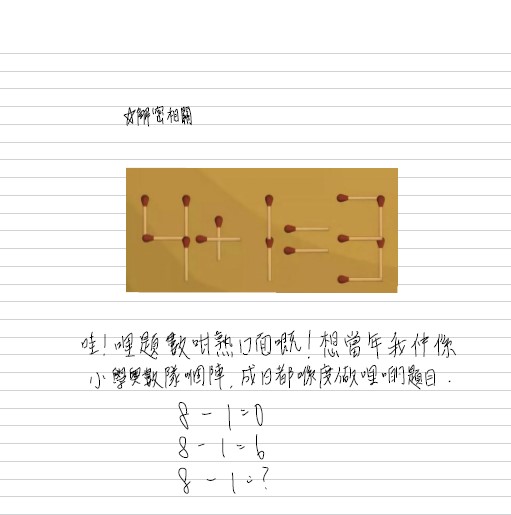 ☆解密相關
4+1=3
哇！哩題數咁熟口面嘅！想當年我仲係
小學奧數隊嗰陣，成日都喺度做哩啲題目．
8-1=0
8-1=6
8-1=?